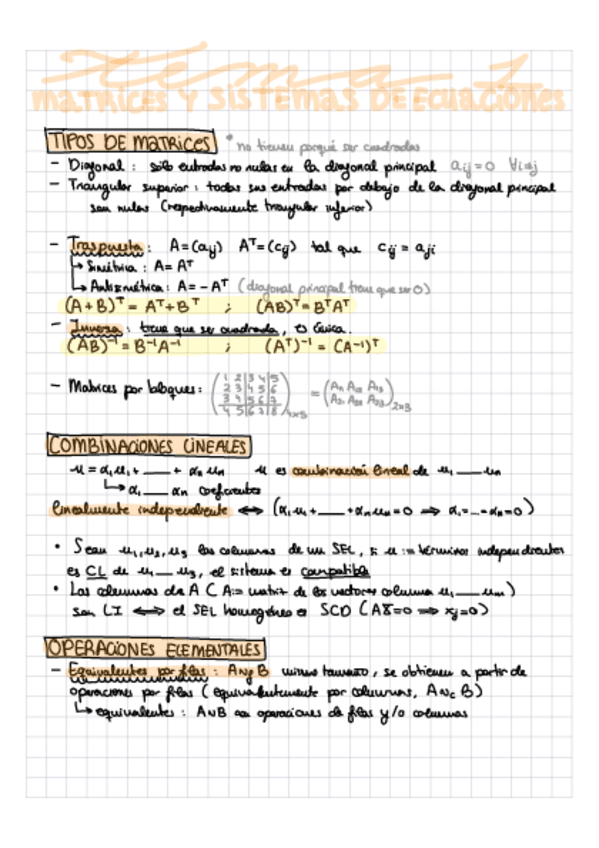 Tema 1
MATRICES Y SISTEMAS DE ECUACIONES
TIPOS DE MATRICES * no tienen porqué ser cuadradas
- Diagonal: sólo entradas no nulas en la diagonal principal aij=0 ∀i≠j
- Triangular superior: todas sus entradas por debajo de la diagonal principal
son nulas (respectivamente triangular inferior)
- Traspuesta: A=(aij) Aᵀ=(cij) tal que cij = aji
↳ Simétrica: A=Aᵀ
↳ Antisimétrica: A=-Aᵀ (diagonal principal tiene que ser 0)
(A+B)ᵀ = Aᵀ+Bᵀ ; (AB)ᵀ=BᵀAᵀ
- Inversa: tiene que ser cuadrada, es única.
(AB)⁻¹=B⁻¹A⁻¹ ; (Aᵀ)⁻¹ = (A⁻¹)ᵀ
- Matrices por bloques: (1 2|3 4|5
2 3|4 5|6
3 4|5 6|7
4 5|6 7|8)4x5 = (A11 A12 A13
A21 A22 A23)2x3
COMBINACIONES LINEALES
u = α1u1 + ___ + αnun u es combinación lineal de u1 ___ un
↳ α1 ___ αn coeficientes
linealmente independiente ⟷ (α1u1 + ___ + αnun=0 ⇒ α1=...=αn=0)
• Sean u1, u2, u3 las columnas de un SEL, si u := términos independientes
es CL de u1 __ u3, el sistema es compatible
• Las columnas de A (A:= matriz de los vectores columna u1 ___ un)
son LI ⟷ el SEL homogéneo es SCD (AX=0 ⇒ xj=0)
OPERACIONES ELEMENTALES
- Equivalentes por filas: A∼f B mismo tamaño, se obtienen a partir de
operaciones por filas (equivalentemente por columnas, A∼c B)
↳ equivalentes: A∼B con operaciones de filas y/o columnas